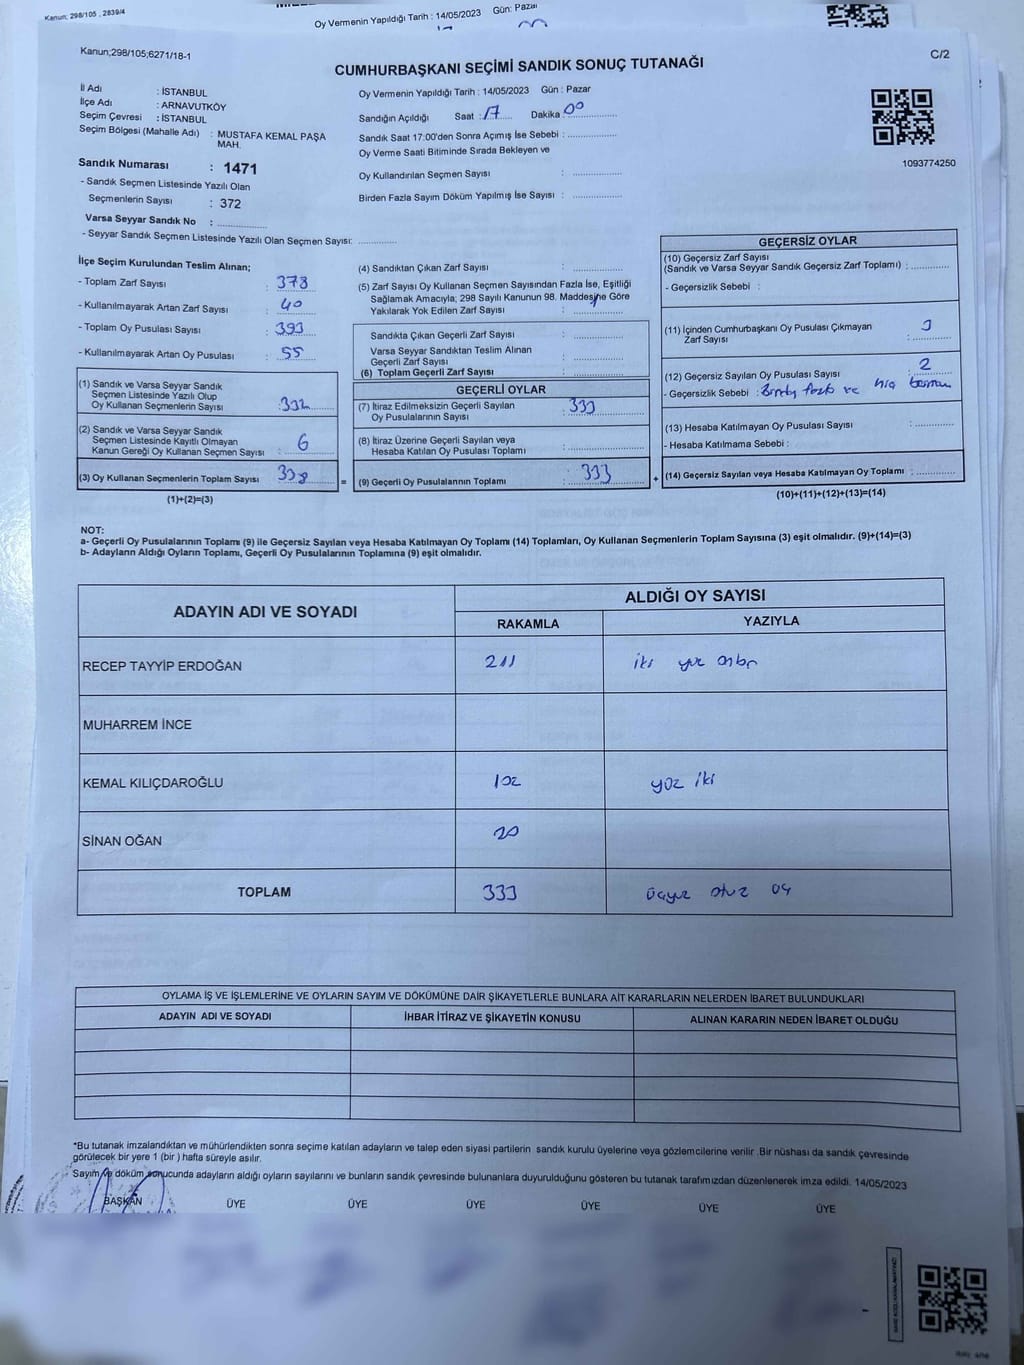 Kanun; 298/105 , 2839/4
Oy Vermenin Yapıldığı Tarih : 14/05/2023 Gün: Pazar
Kanun;298/105;6271/18-1
C/2
CUMHURBAŞKANI SEÇİMİ SANDIK SONUÇ TUTANAĞI
İl Adı : İSTANBUL
İlçe Adı : ARNAVUTKÖY
Seçim Çevresi : İSTANBUL
Seçim Bölgesi (Mahalle Adı) : MUSTAFA KEMAL PAŞA
MAH.
Sandık Numarası : 1471
- Sandık Seçmen Listesinde Yazılı Olan
Seçmenlerin Sayısı : 372
Varsa Seyyar Sandık No : ..............
- Seyyar Sandık Seçmen Listesinde Yazılı Olan Seçmen Sayısı: ............
Oy Vermenin Yapıldığı Tarih : 14/05/2023 Gün : Pazar
Sandığın Açıldığı Saat : 17 Dakika 00
Sandık Saat 17:00'den Sonra Açımış İse Sebebi : ................
Oy Verme Saati Bitiminde Sırada Bekleyen ve
Oy Kullandırılan Seçmen Sayısı : ................
Birden Fazla Sayım Döküm Yapılmış İse Sayısı : ................
1093774250
İlçe Seçim Kurulundan Teslim Alınan;
- Toplam Zarf Sayısı : 378
- Kullanılmayarak Artan Zarf Sayısı : 40
- Toplam Oy Pusulası Sayısı : 393
- Kullanılmayarak Artan Oy Pusulası : 55
(1) Sandık ve Varsa Seyyar Sandık
Seçmen Listesinde Yazılı Olup
Oy Kullanan Seçmenlerin Sayısı : 332
(2) Sandık ve Varsa Seyyar Sandık
Seçmen Listesinde Kayıtlı Olmayan
Kanun Gereği Oy Kullanan Seçmen Sayısı : 6
(3) Oy Kullanan Seçmenlerin Toplam Sayısı : 338
(1)+(2)=(3)
(4) Sandıktan Çıkan Zarf Sayısı : ................
(5) Zarf Sayısı Oy Kullanan Seçmen Sayısından Fazla İse, Eşitliği
Sağlamak Amacıyla; 298 Sayılı Kanunun 98. Maddesine Göre
Yakılarak Yok Edilen Zarf Sayısı : ................
Sandıkta Çıkan Geçerli Zarf Sayısı : ................
Varsa Seyyar Sandıktan Teslim Alınan
Geçerli Zarf Sayısı : ................
(6) Toplam Geçerli Zarf Sayısı : ................
GEÇERLİ OYLAR
(7) İtiraz Edilmeksizin Geçerli Sayılan
Oy Pusulalarının Sayısı : 333
(8) İtiraz Üzerine Geçerli Sayılan veya
Hesaba Katılan Oy Pusulası Toplamı : ................
= (9) Geçerli Oy Pusulalarının Toplamı : 333 +
GEÇERSİZ OYLAR
(10) Geçersiz Zarf Sayısı
(Sandık ve Varsa Seyyar Sandık Geçersiz Zarf Toplamı) : ............
- Geçersizlik Sebebi :
(11) İçinden Cumhurbaşkanı Oy Pusulası Çıkmayan
Zarf Sayısı : 3
(12) Geçersiz Sayılan Oy Pusulası Sayısı : 2
- Geçersizlik Sebebi : fazla ve hiç
(13) Hesaba Katılmayan Oy Pusulası Sayısı : ............
- Hesaba Katılmama Sebebi :
(14) Geçersiz Sayılan veya Hesaba Katılmayan Oy Toplamı : ............
(10)+(11)+(12)+(13)=(14)
NOT:
a- Geçerli Oy Pusulalarının Toplamı (9) ile Geçersiz Sayılan veya Hesaba Katılmayan Oy Toplamı (14) Toplamları, Oy Kullanan Seçmenlerin Toplam Sayısına (3) eşit olmalıdır. (9)+(14)=(3)
b- Adayların Aldığı Oyların Toplamı, Geçerli Oy Pusulalarının Toplamına (9) eşit olmalıdır.
ADAYIN ADI VE SOYADI
ALDIĞI OY SAYISI
RAKAMLA
YAZIYLA
RECEP TAYYİP ERDOĞAN 211 iki yüz onbir
MUHARREM İNCE
KEMAL KILIÇDAROĞLU 102 yüz iki
SİNAN OĞAN 20
TOPLAM 333 üçyüz otuz üç
OYLAMA İŞ VE İŞLEMLERİNE VE OYLARIN SAYIM VE DÖKÜMÜNE DAİR ŞİKAYETLERLE BUNLARA AİT KARARLARIN NELERDEN İBARET BULUNDUKLARI
ADAYIN ADI VE SOYADI
İHBAR İTİRAZ VE ŞİKAYETİN KONUSU
ALINAN KARARIN NEDEN İBARET OLDUĞU
*Bu tutanak imzalandıktan ve mühürlendikten sonra seçime katılan adayların ve talep eden siyasi partilerin sandık kurulu üyelerine veya gözlemcilerine verilir .Bir nüshası da sandık çevresinde
görülecek bir yere 1 (bir ) hafta süreyle asılır.
Sayım ve döküm sonucunda adayların aldığı oyların sayılarını ve bunların sandık çevresinde bulunanlara duyurulduğunu gösteren bu tutanak tarafımızdan düzenlenerek imza edildi. 14/05/2023
BAŞKAN ÜYE ÜYE ÜYE ÜYE ÜYE ÜYE